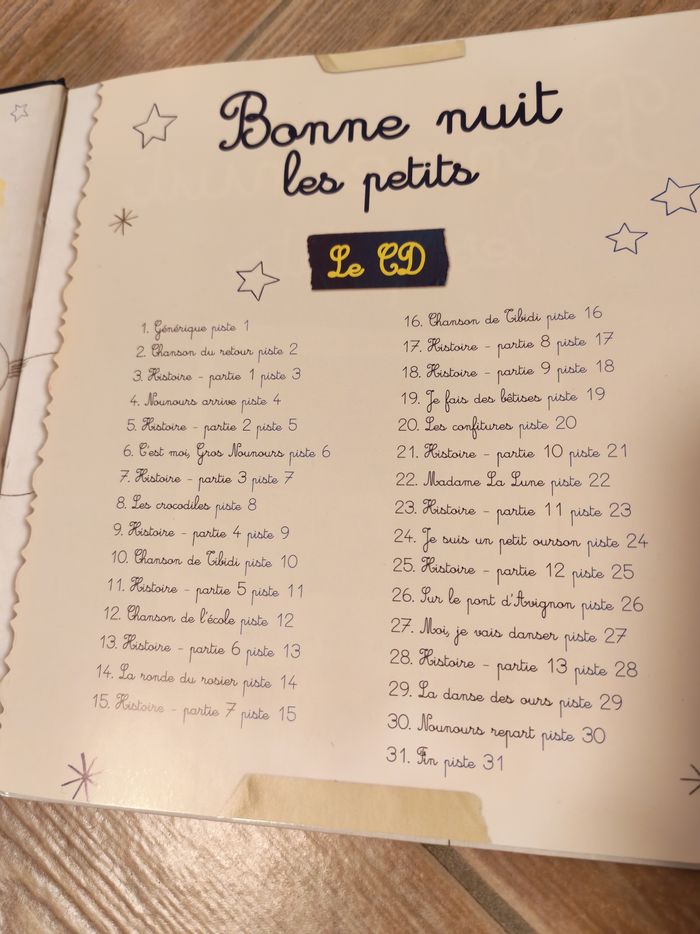 Bonne nuit
les petits
Le CD
1. Générique piste 1
2. Chanson du retour piste 2
3. Histoire - partie 1 piste 3
4. Nounours arrive piste 4
5. Histoire - partie 2 piste 5
6. C'est moi, Gros Nounours piste 6
7. Histoire - partie 3 piste 7
8. Les crocodiles piste 8
9. Histoire - partie 4 piste 9
10. Chanson de Tibidi piste 10
11. Histoire - partie 5 piste 11
12. Chanson de l'école piste 12
13. Histoire - partie 6 piste 13
14. La ronde du rosier piste 14
15. Histoire - partie 7 piste 15
16. Chanson de Tibidi piste 16
17. Histoire - partie 8 piste 17
18. Histoire - partie 9 piste 18
19. Je fais des bêtises piste 19
20. Les confitures piste 20
21. Histoire - partie 10 piste 21
22. Madame La Lune piste 22
23. Histoire - partie 11 piste 23
24. Je suis un petit ourson piste 24
25. Histoire - partie 12 piste 25
26. Sur le pont d'Avignon piste 26
27. Moi, je vais danser piste 27
28. Histoire - partie 13 piste 28
29. La danse des ours piste 29
30. Nounours repart piste 30
31. Fin piste 31